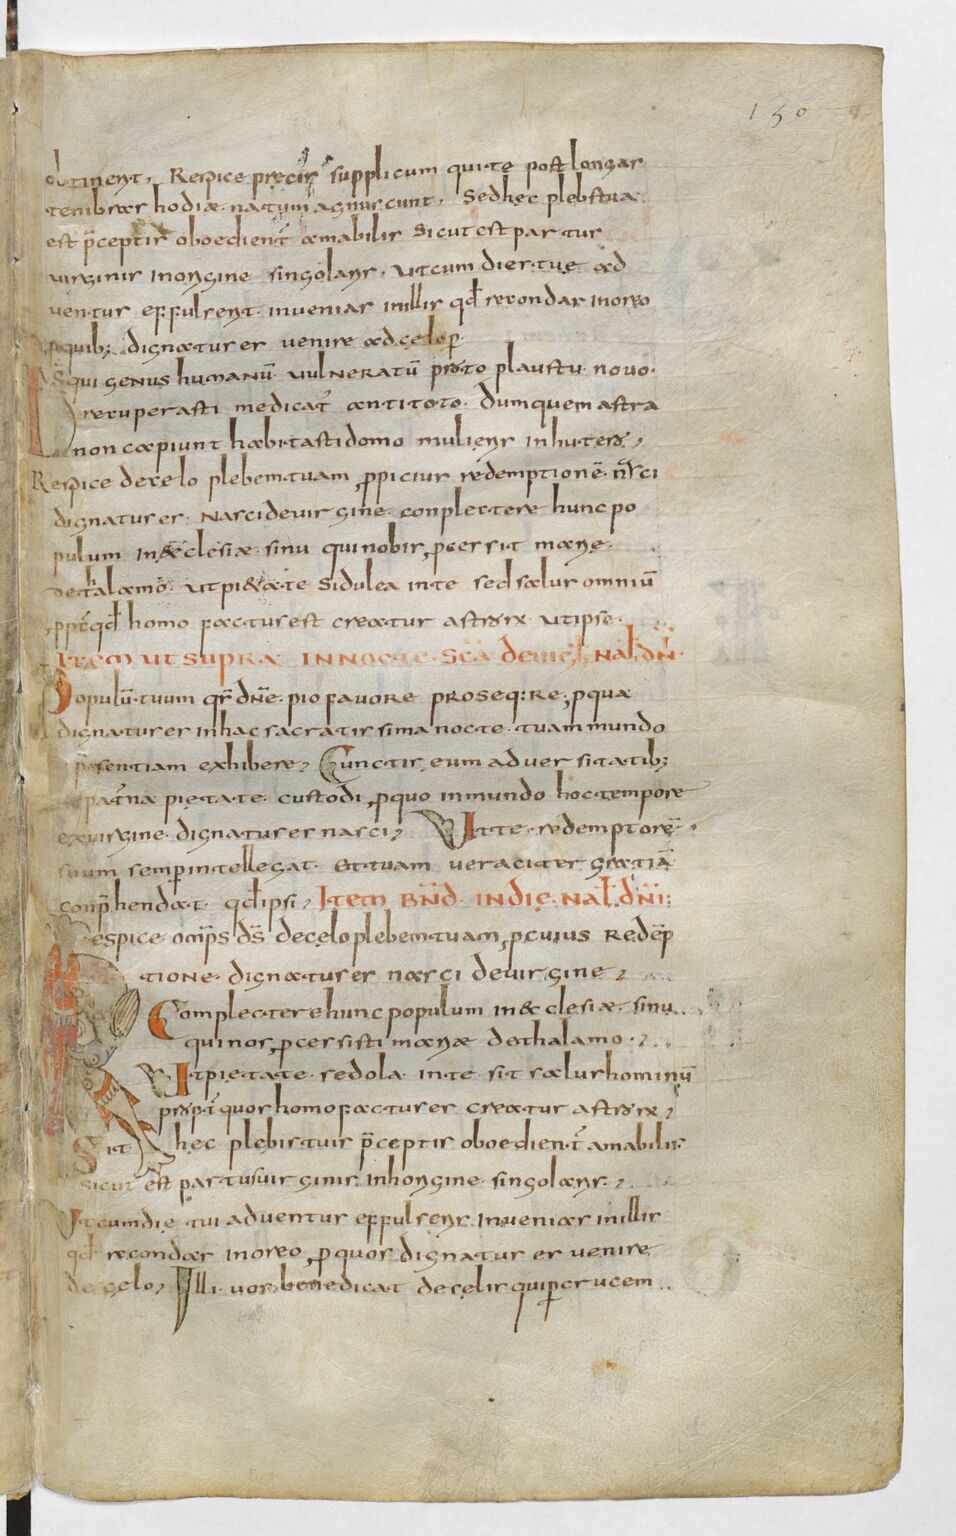 150
obtinent. Respice precis supplicum qui te post longas
tenebras hodiæ natum agnuscunt. Sed hec plebs tua
est p̄ceptis oboedienť amabilis Sicut est partur
virginis in origine singolaris, ut cum dies tuę ad
ventus effulsent invenias in illis qď recondas in oreo
p quib; dignatus es venire ad celos
Dš qui genus humanū vulneratū proto plaustu novo
recuperasti medicať antitoto. dum quem astra
non capiunt habitasti domo mulieris in hutero,
Respice decelo plebem tuam, p picius redemptionē n̄asci
dignatus es nasci de virgine conplectere hunc po
pulum in æclesiæ sinu qui nobis pcessit marie
de thalamo ut pietate sidulea in te sed salus omniū
ppť qď homo factus est creatur astrorix ut ipse
Item ut supra in nocte scā de vigl nal dn̄i
Populū tuum qs dn̄e pio favore proseq:re, p qua
dignatus es in hac sacratissima nocte tuam mundo
p̄sentiam exhibere, Cunctis eum adversitatib;
paťna pietate custodi, p quo in mundo hoc tempore
ex virgine dignatus es nasci, Ut te redemptorē
suum semper intellegat et tuam veraciter gratiā
conp̄hendat qď ipsi, Item bn̄d in die nal dn̄i:
Respice omp̄s dš decelo plebem tuam, p cuius redēp
tione dignatus es nasci de virgine,
Complectere hunc populum in æclesiæ sinu
qui nos pcessisti mariæ de thalamo,
Ut pietate sedola in te sit salus hominū
propť quos homo factus es creatur astrorix,
Sit hec plebis tuis p̄ceptis oboedienť amabilis
sicut est partus virginis in horigine singolaris,
Ut cum die tui adventus effulseris invenias in illis
qď recondas in oreo, p quos dignatus es venire
de celo, Illi vos benedicat decelis qui p crucem